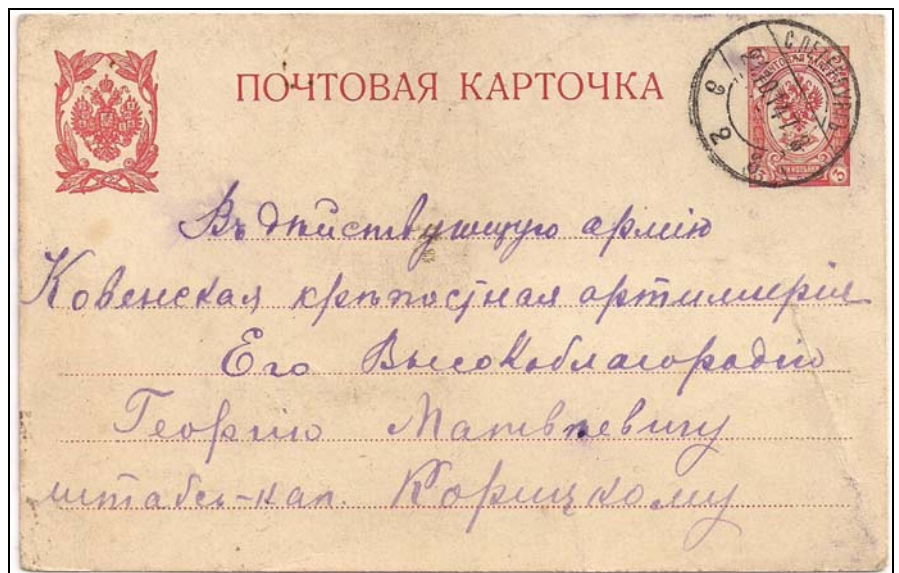 ПОЧТОВАЯ КАРТОЧКА
Въ дѣйствующую армію
Ковенская крѣпостная артиллерія
Его Высокоблагородію
Георгію Матвѣевичу
штабсъ-кап. Корицкому